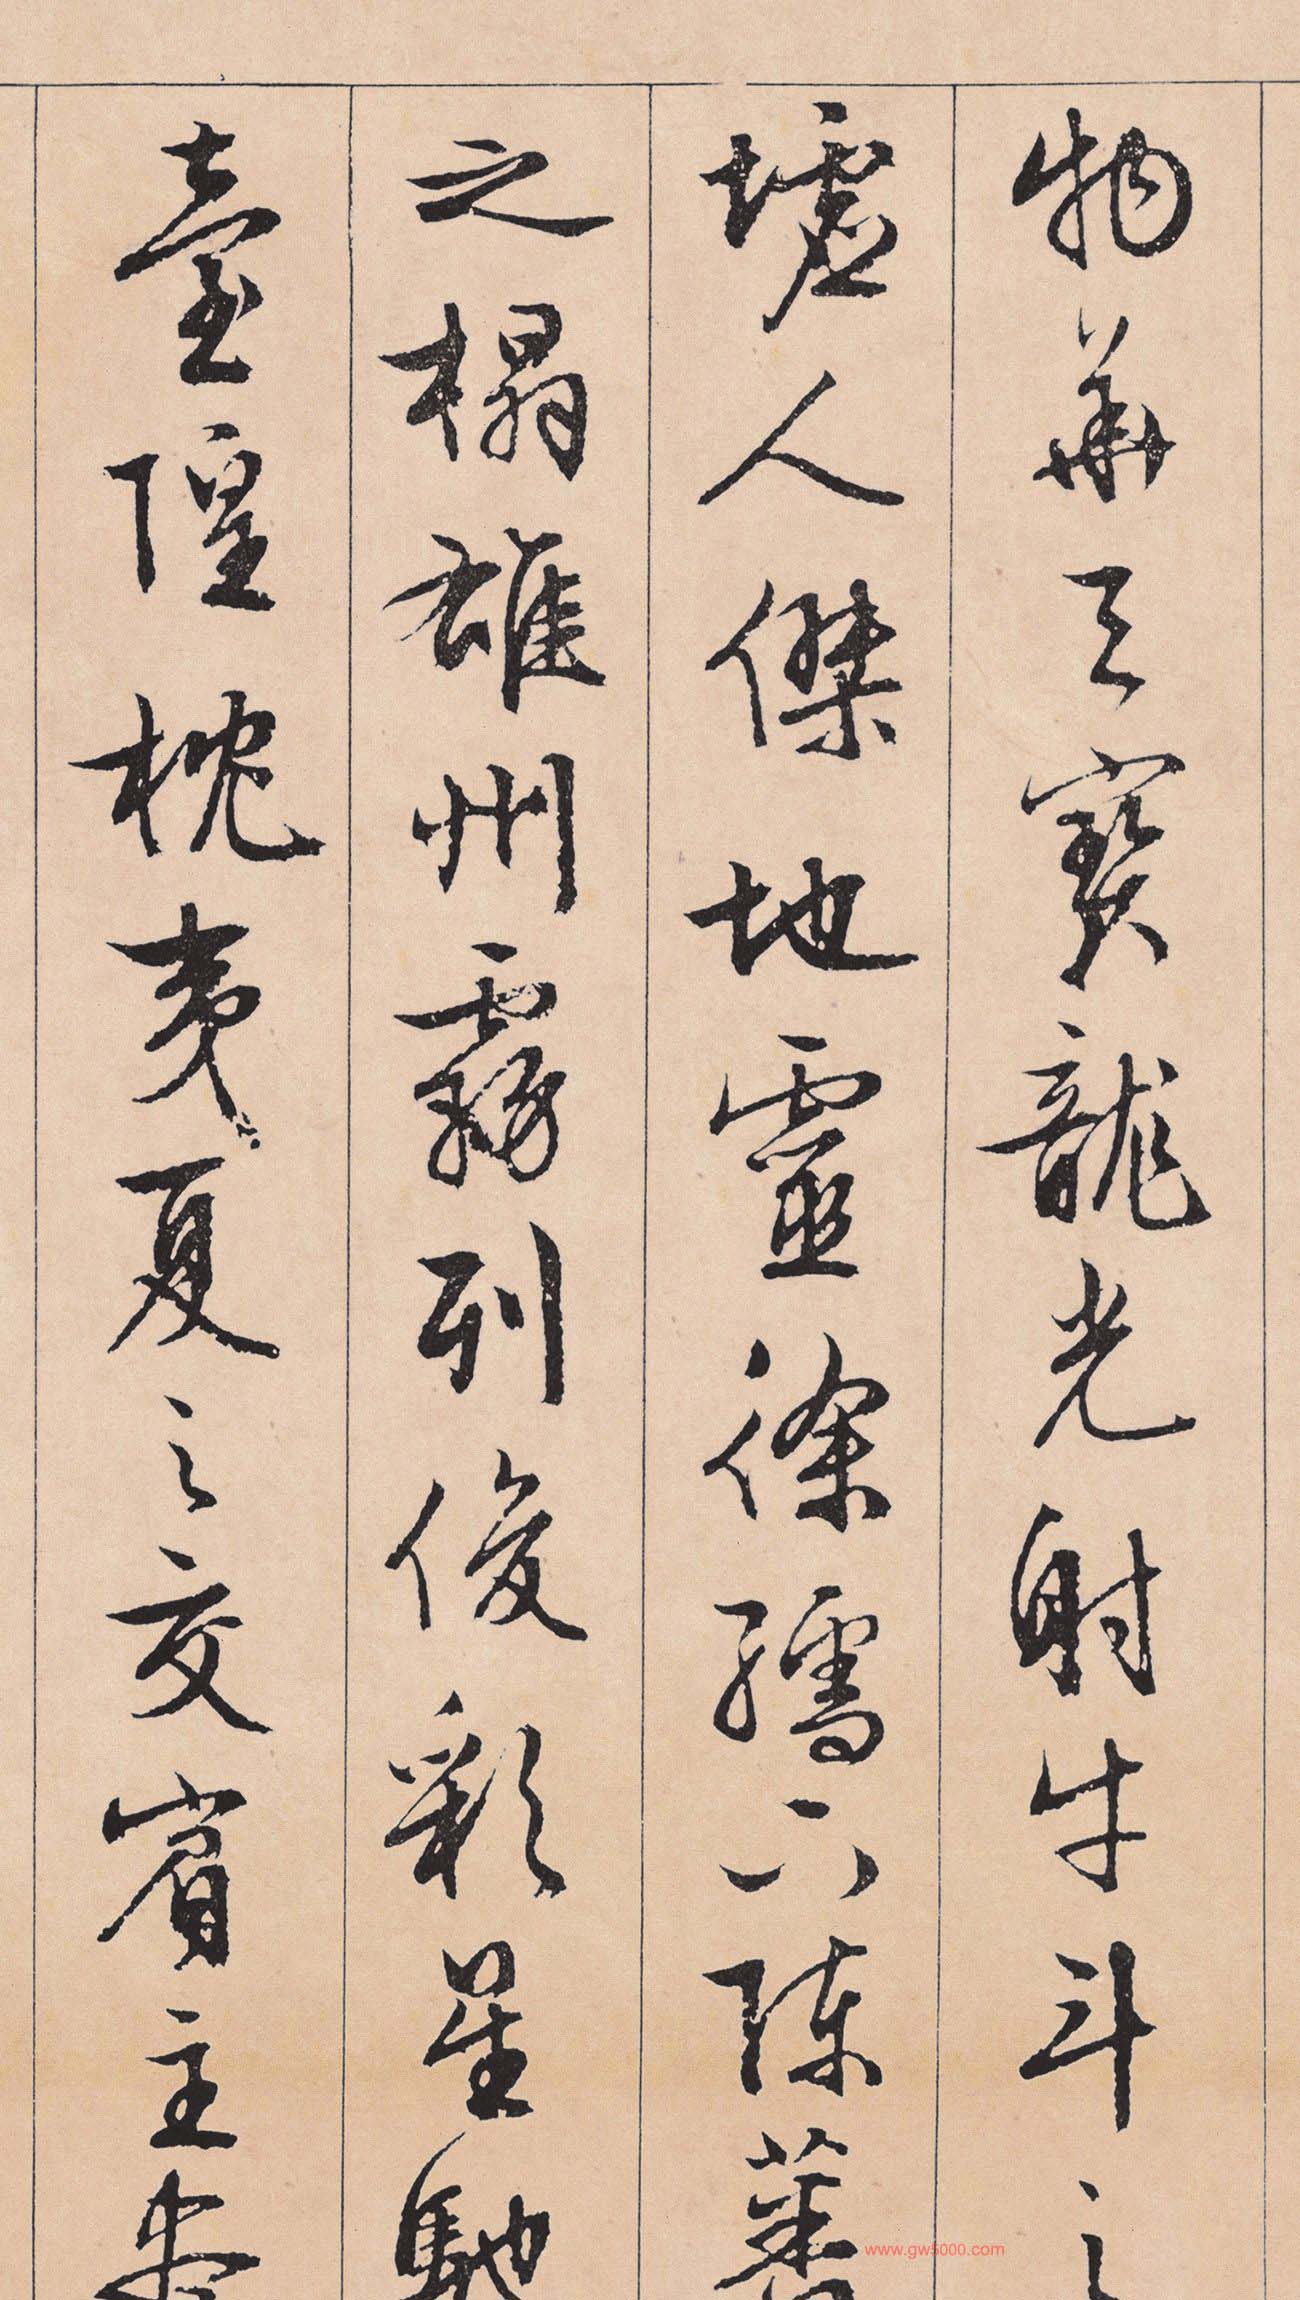 物華天寶龍光射牛斗之
墟人傑地靈徐孺下陳蕃
之榻雄州霧列俊彩星馳
臺隍枕夷夏之交賓主盡
www.gw5000.com